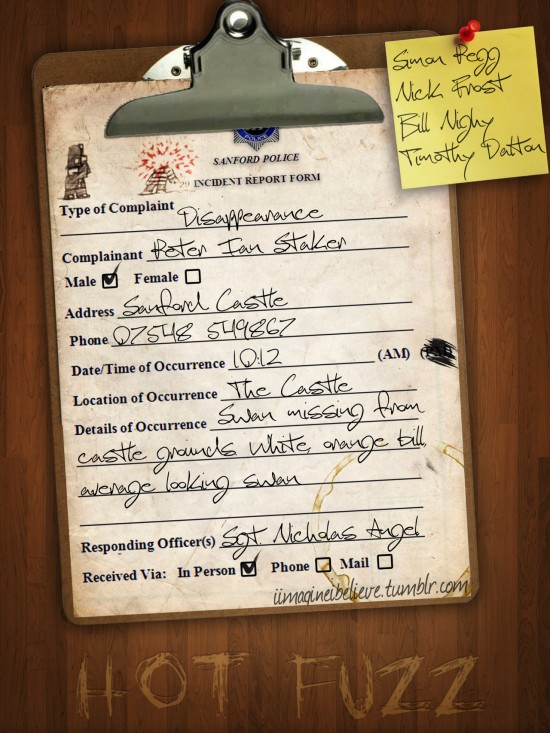 Simon Pegg
Nick Frost
Bill Nighy
Timothy Dalton
POLICE
SANFORD POLICE
INCIDENT REPORT FORM
Type of Complaint Disappearance
Complainant Peter Ian Staker
Male Female
Address Sanford Castle
Phone 07548 549867
Date/Time of Occurrence 10:12 (AM)
Location of Occurrence The Castle
Details of Occurrence Swan missing from
castle grounds White, orange bill,
average looking swan
Responding Officer(s) Sgt Nicholas Angel
Received Via: In Person Phone Mail
iimagineibelieve.tumblr.com
HOT FUZZ